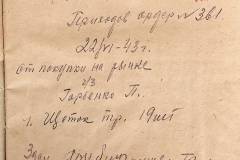 Приходов ордер № 361.
22/VI-43г.
от покупки на рынке
ч/з
Горбенко П.
1. Щеток тр. 19 шт